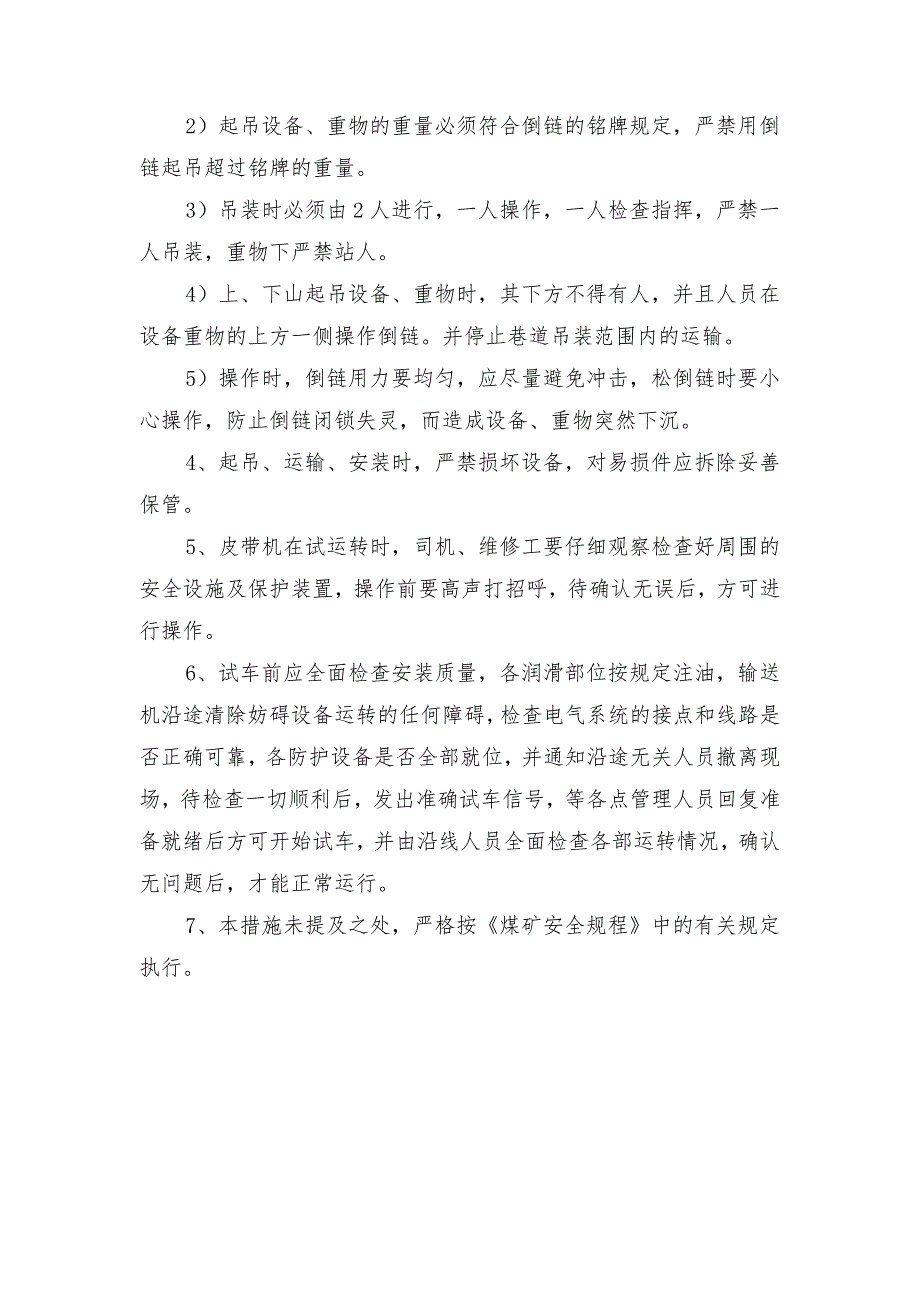 2）起吊设备、重物的重量必须符合倒链的铭牌规定，严禁用倒
链起吊超过铭牌的重量。
3）吊装时必须由2人进行，一人操作，一人检查指挥，严禁一
人吊装，重物下严禁站人。
4）上、下山起吊设备、重物时，其下方不得有人，并且人员在
设备重物的上方一侧操作倒链。并停止巷道吊装范围内的运输。
5）操作时，倒链用力要均匀，应尽量避免冲击，松倒链时要小
心操作，防止倒链闭锁失灵，而造成设备、重物突然下沉。
4、起吊、运输、安装时，严禁损坏设备，对易损件应拆除妥善
保管。
5、皮带机在试运转时，司机、维修工要仔细观察检查好周围的
安全设施及保护装置，操作前要高声打招呼，待确认无误后，方可进
行操作。
6、试车前应全面检查安装质量，各润滑部位按规定注油，输送
机沿途清除妨碍设备运转的任何障碍，检查电气系统的接点和线路是
否正确可靠，各防护设备是否全部就位，并通知沿途无关人员撤离现
场，待检查一切顺利后，发出准确试车信号，等各点管理人员回复准
备就绪后方可开始试车，并由沿线人员全面检查各部运转情况，确认
无问题后，才能正常运行。
7、本措施未提及之处，严格按《煤矿安全规程》中的有关规定
执行。